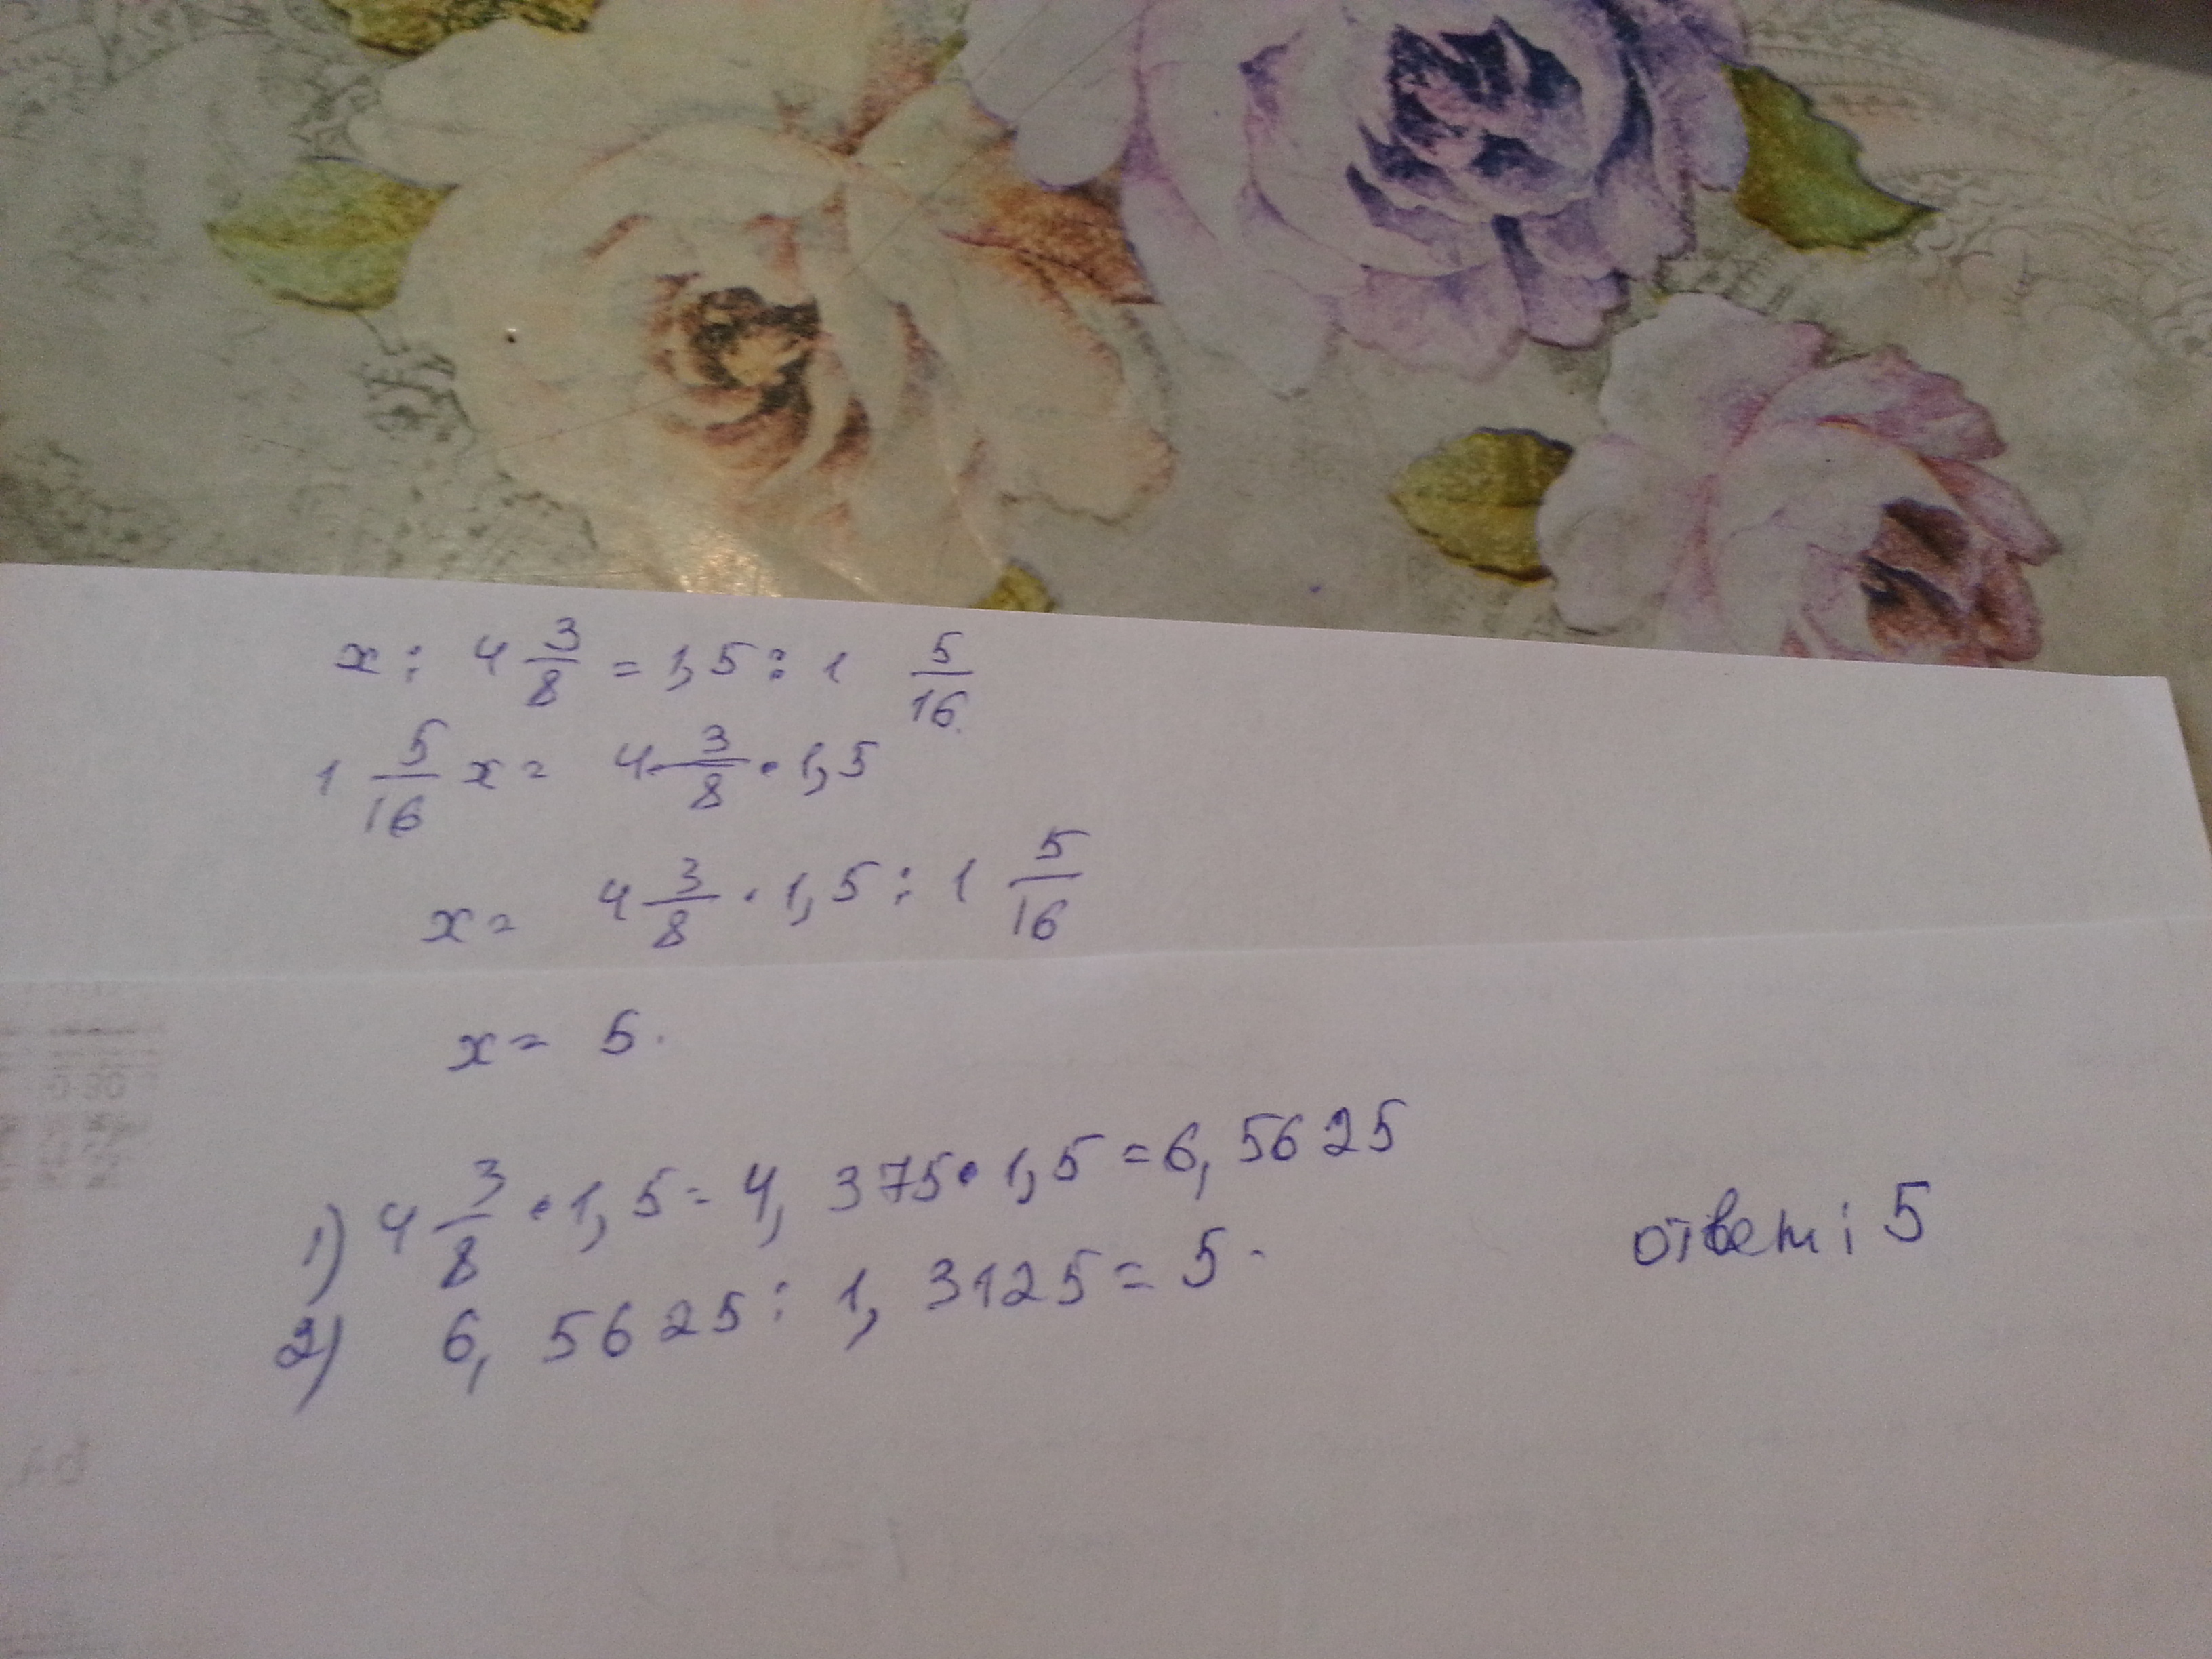 x : 4 3/8 = 1,5 : 1 5/16
1 5/16 x = 4 3/8 · 1,5
x = 4 3/8 · 1,5 : 1 5/16
x = 5.
1) 4 3/8 · 1,5 = 4,375 · 1,5 = 6,5625
2) 6,5625 : 1,3125 = 5.
ответ : 5